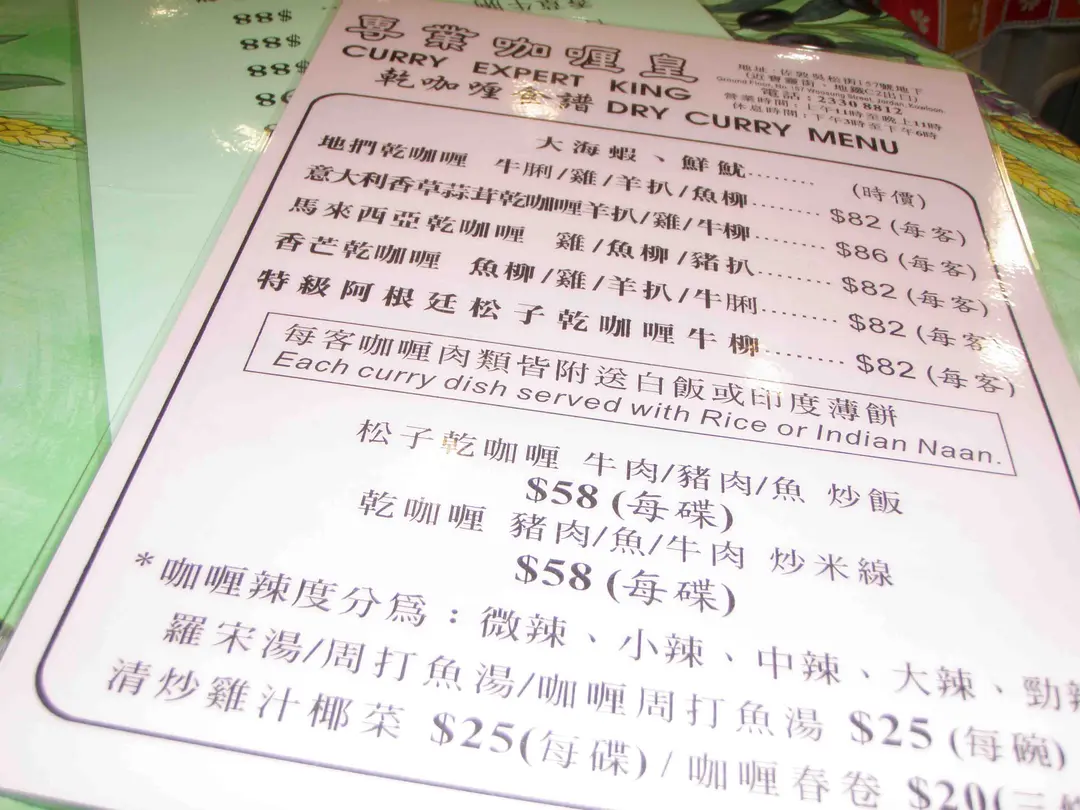 $88
$88
$88
專業咖喱皇
CURRY EXPERT KING
乾咖喱食譜 DRY CURRY MENU
地址：佐敦吳松街157號地下
(近寶靈街、地鐵C2出口)
Ground Floor, No.157 Woosung Street, Jordan, Kowloon.
電話：2330 8812
營業時間：上午11時至晚上11時
休息時間：下午3時至下午6時
大海蝦、鮮魷........ (時價)
地捫乾咖喱 牛脷/雞/羊扒/魚柳......... $82 (每客)
意大利香草蒜茸乾咖喱羊扒/雞/牛柳......... $86 (每客)
馬來西亞乾咖喱 雞/魚柳/豬扒......... $82 (每客)
香芒乾咖喱 魚柳/雞/羊扒/牛脷......... $82 (每客)
特級阿根廷松子乾咖喱牛柳......... $82 (每客)
每客咖喱肉類皆附送白飯或印度薄餅
Each curry dish served with Rice or Indian Naan.
松子乾咖喱 牛肉/豬肉/魚 炒飯
$58 (每碟)
乾咖喱 豬肉/魚/牛肉 炒米線
$58 (每碟)
*咖喱辣度分爲：微辣、小辣、中辣、大辣、勁辣
羅宋湯/周打魚湯/咖喱周打魚湯 $25 (每碗)
清炒雞汁椰菜 $25(每碟) / 咖喱春卷 $20(